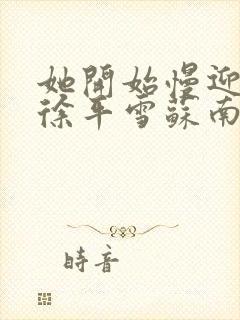 她開始慢迎
徐平雪蘇南
時音